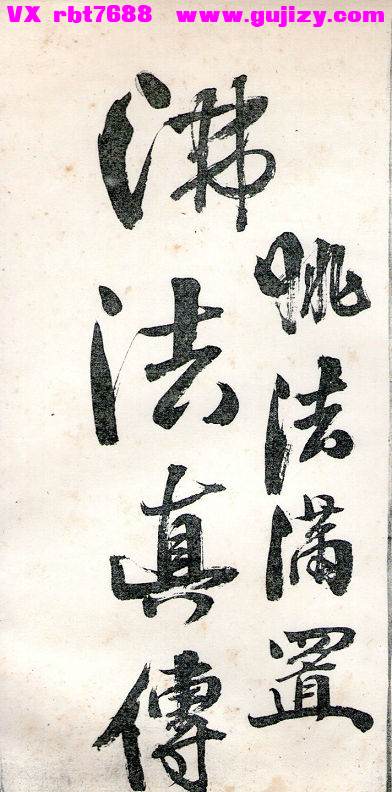 VX rbt7688 www.gujizy.com
咷法滿置
沸法真傳